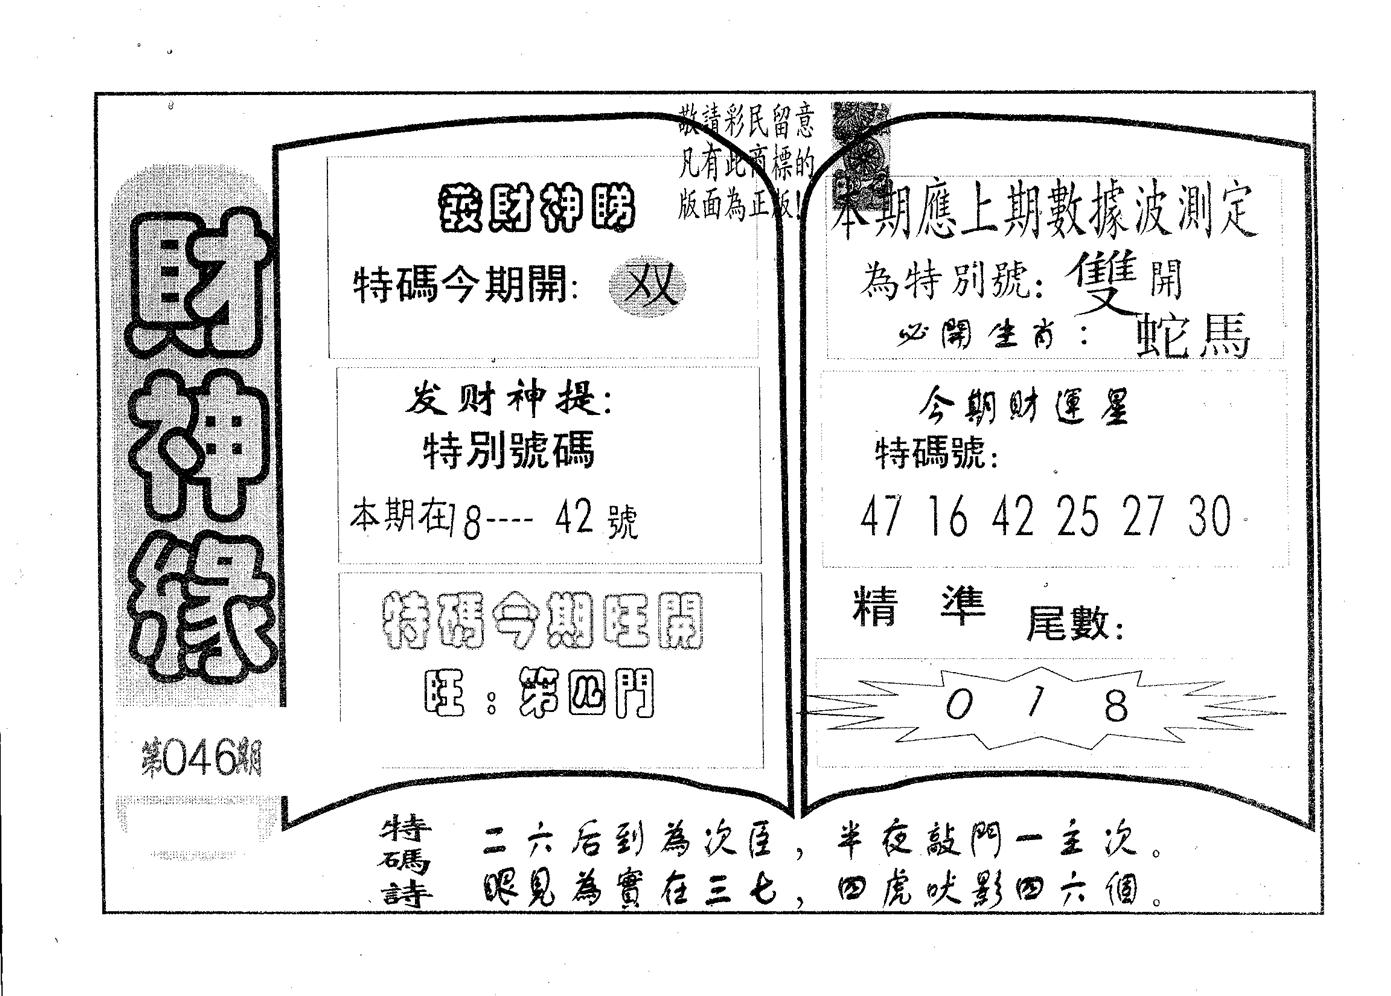 財神緣
第046期
敬請彩民留意
凡有此商標的
版面為正版!
發財神睇
特碼今期開: 双
发财神提:
特別號碼
本期在18---- 42 號
特碼今期旺開
旺:第四門
本期應上期數據波測定
為特別號: 雙 開
必開生肖: 蛇馬
今期財運星
特碼號:
47 16 42 25 27 30
精準 尾數:
0 1 8
特碼詩
二六后到為次臣,半夜敲門一主次。
眼見為實在三七,四虎吠影四六個。